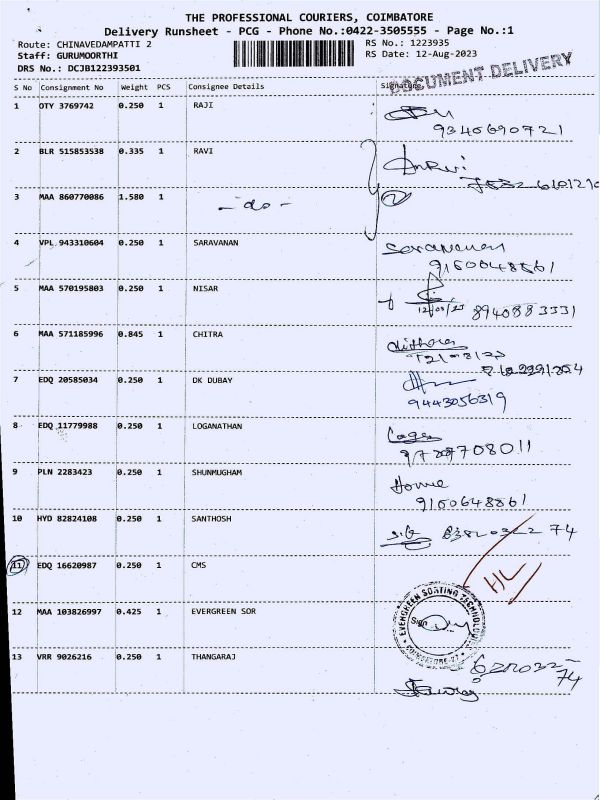 THE PROFESSIONAL COURIERS, COIMBATORE
Delivery Runsheet - PCG - Phone No.:0422-3505555 - Page No.:1
Route: CHINAVEDAMPATTI 2
RS No.: 1223935
Staff: GURUMOORTHI
RS Date: 12-Aug-2023
DRS No.: DCJB122393501
DOCUMENT DELIVERY
S No Consignment No Weight PCS Consignee Details Signature
1 OTY 3769742 0.250 1 RAJI
9340690721
2 BLR 515853538 0.335 1 RAVI
3 MAA 860770086 1.580 1 - do - 2
4 VPL 943310604 0.250 1 SARAVANAN Saravanan
9160048661
5 MAA 570195803 0.250 1 NISAR
12/08/23 8940883331
6 MAA 571185996 0.845 1 CHITRA
7 EDQ 20585034 0.250 1 DK DUBAY
9443056319
8 EDQ 11779988 0.250 1 LOGANATHAN
9787708011
9 PLN 2283423 0.250 1 SHUNMUGHAM
9160648861
10 HYD 82824108 0.250 1 SANTHOSH
11 EDQ 16620987 0.250 1 CMS
12 MAA 103826997 0.425 1 EVERGREEN SOR
EVERGREEN SORTING TECHNOLOGIES
COIMBATORE-27
13 VRR 9026216 0.250 1 THANGARAJ